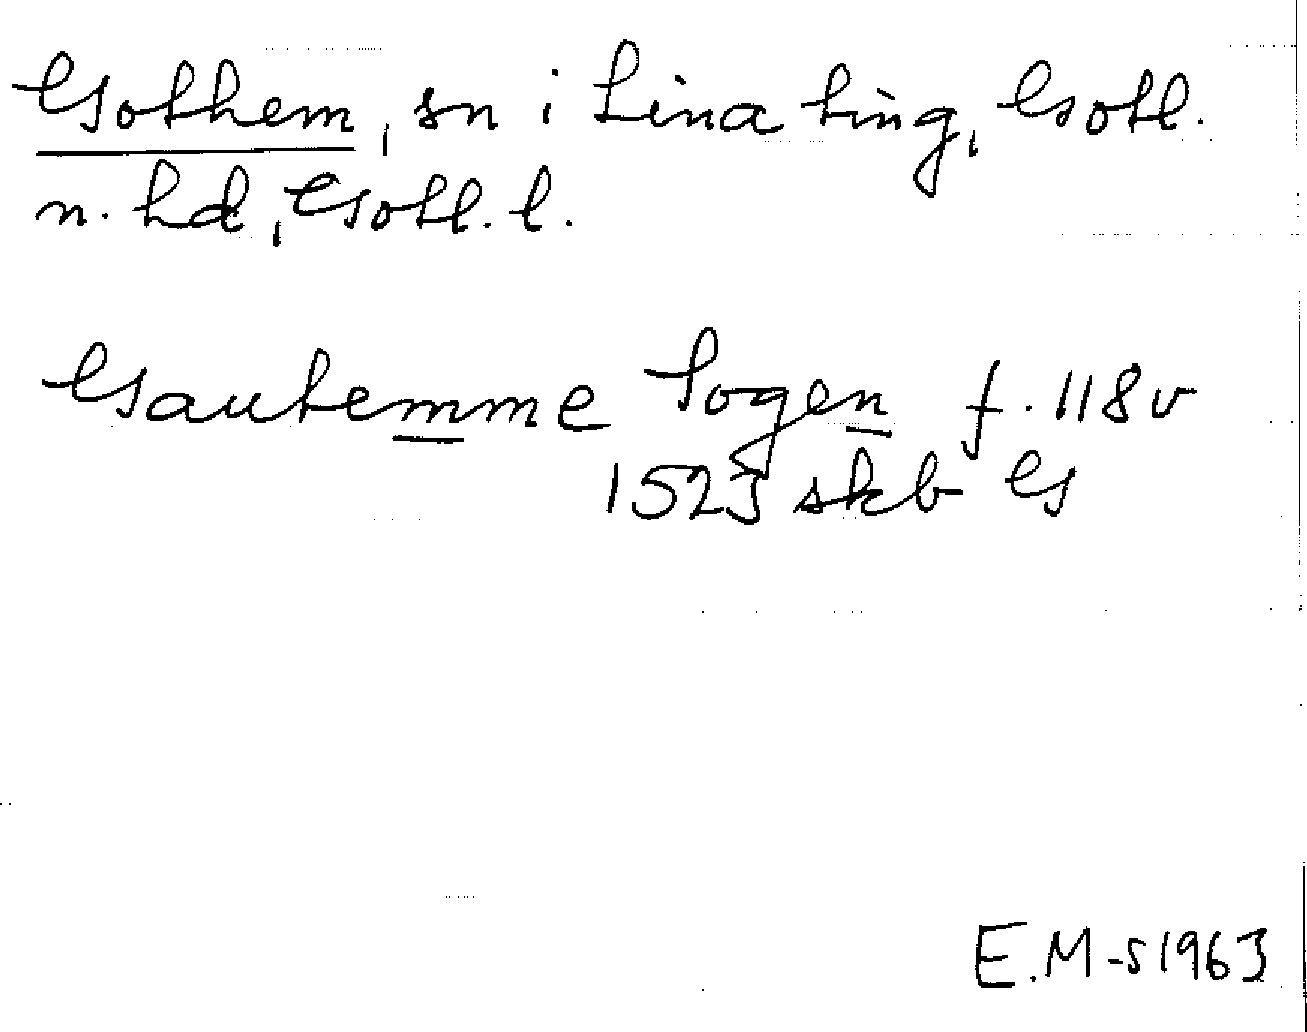 Gothem, sn i Lina ting, Gotl.
n. hd, Gotl. l.
Gautemme Sogen f. 118v
1523 skb G
E.M-s 1963